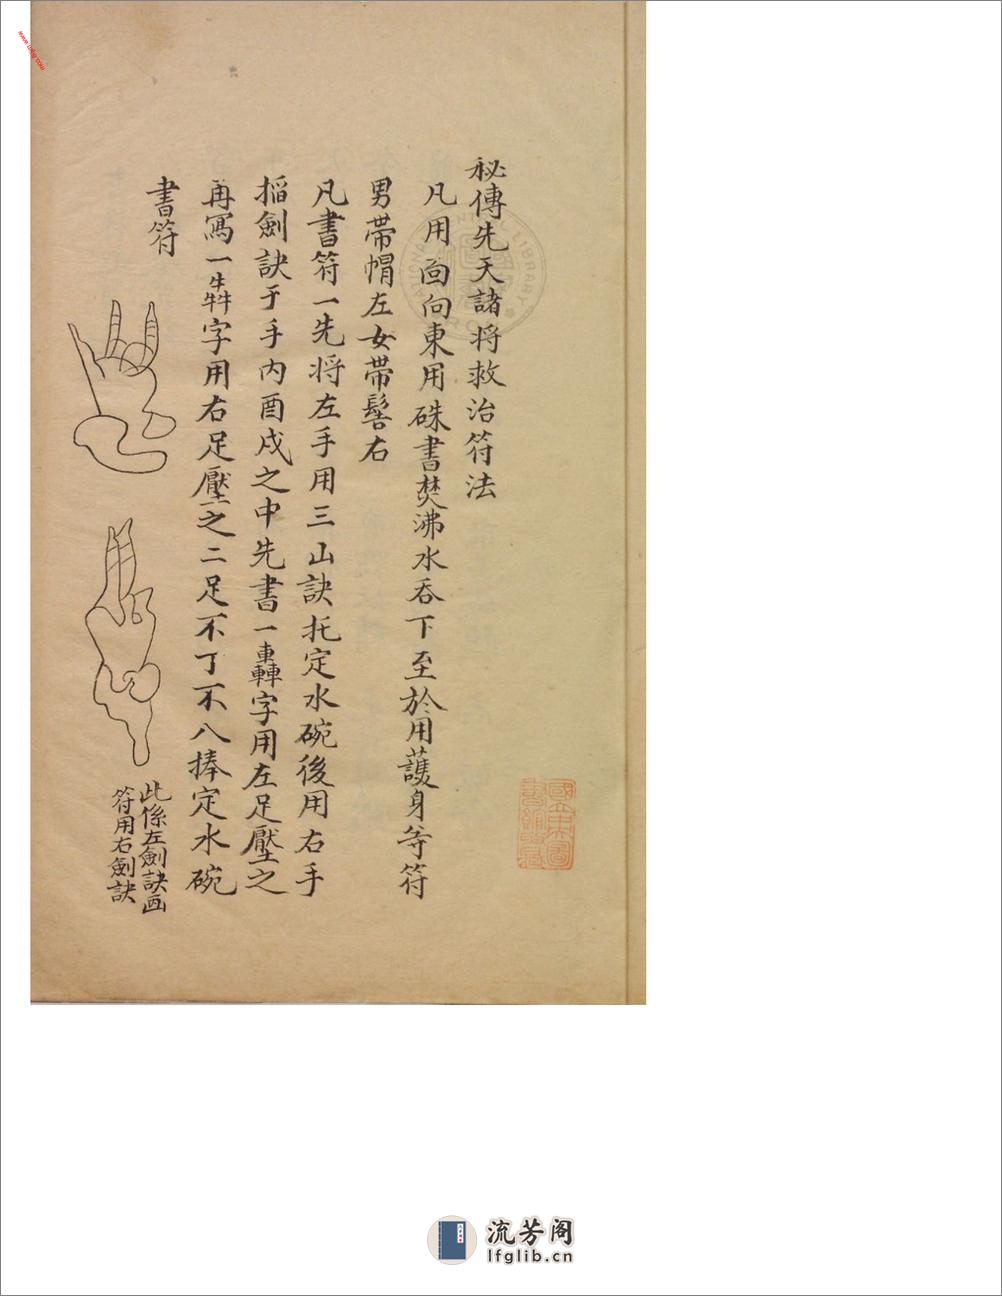 秘傳先天諸将救治符法
凡用面向東用硃書焚沸水吞下至於用護身等符
男帶帽左女帶髻右
凡書符一先将左手用三山訣托定水碗後用右手
掐劍訣于手内酉戌之中先書一轟字用左足壓之
再寫一犇字用右足壓之二足不丁不八捧定水碗
書符
此係左劍訣画
符用右劍訣
國立中央圖
書館收藏
NATIONAL CENTRAL LIBRARY
流芳阁
lfglib.cn